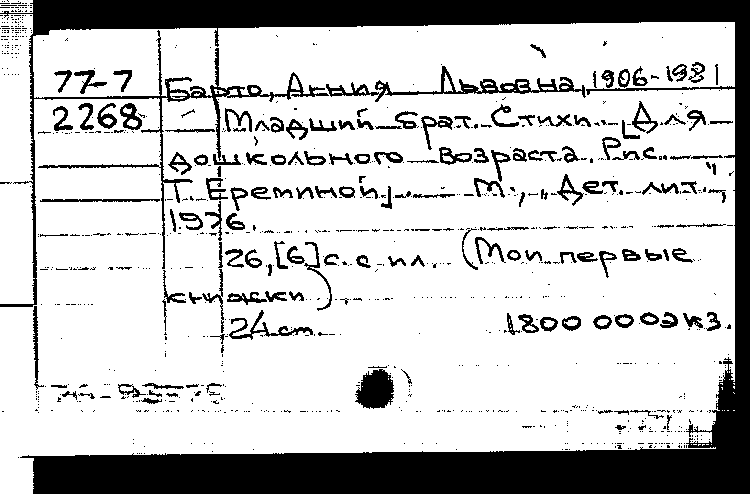 77-7 Барто, Агния Львовна, 1906-1981
2268 Младший брат. Стихи. [Для
дошкольного возраста. Рис.
Т. Ереминой]. М., "Дет. лит.",
1976.
26,[6]с. с ил. (Мои первые
книжки).
24 см. 1800 000экз.